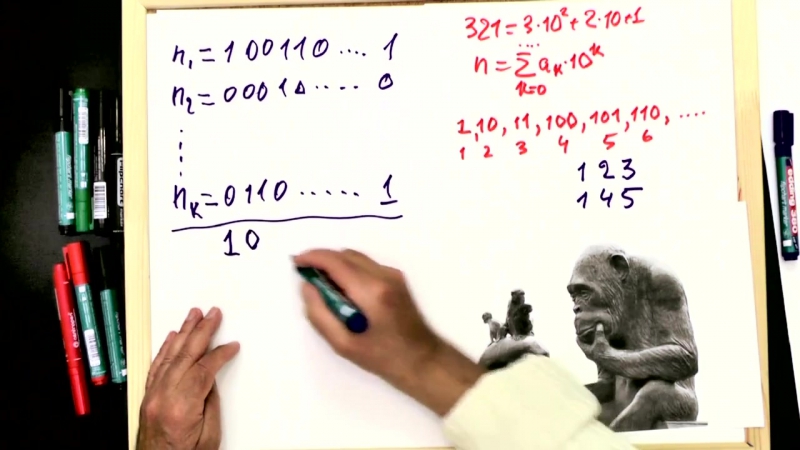 n₁ = 100110 .... 1
n₂ = 00010 .... 0
nₖ = 0110 ..... 1
10
321 = 3·10² + 2·10 + 1
n = ∑ aₖ·10ᵏ
k=0
1, 10, 11, 100, 101, 110, ....
1 2 3 4 5 6
123
145
edding 380